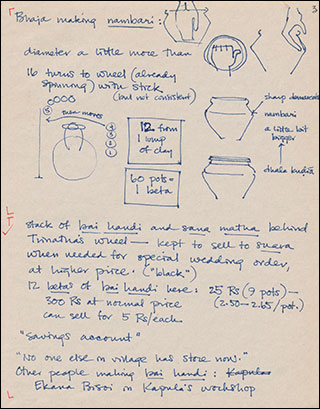 3
Bhaja making nambari:
diameter a little more than
16 turns to wheel (already
spinning) with stick
(but not consistent)
man moves
12 from
1 lump
of clay
60 pots =
1 beta
sharp demarcation
nambari
a little bit
bigger
dhala kudia
stack of bai handi and sana matha behind
Trinatha's wheel — kept to sell to suara
when needed for special wedding order,
at higher price. ("black")
12 betas of bai handi here: 25 Rs (9 pots) —
300 Rs at normal price (2.50-2.65/pot.)
can sell for 5 Rs/each
"savings account"
"No one else in village has store now."
Other people making bai handi: Kapula
Ekana Bisoi in Kapula's workshop